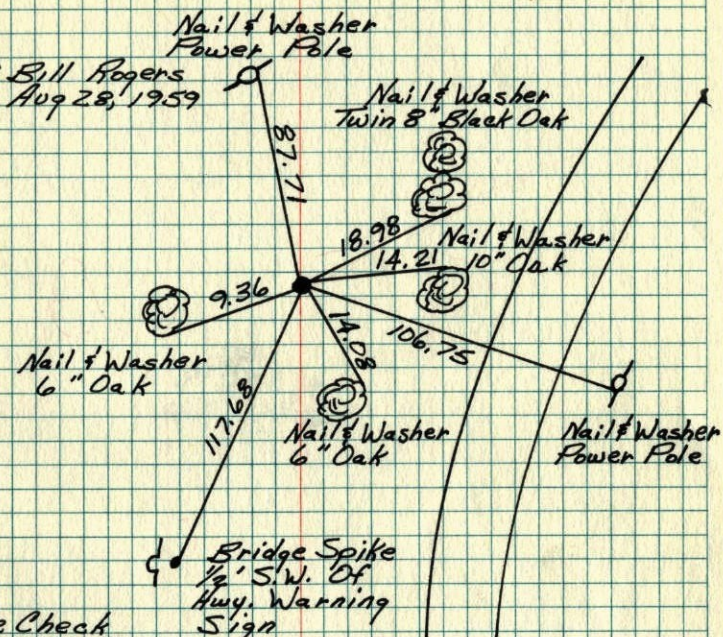 Nail & Washer
Power Pole
Bill Rogers
Aug 28, 1959
87.71
Nail & Washer
Twin 8" Black Oak
18.98
Nail & Washer
10" Oak
14.21
9.36
Nail & Washer
6" Oak
14.08
Nail & Washer
6" Oak
106.75
Nail & Washer
Power Pole
117.68
Bridge Spike
1/2' S.W. Of
Hwy. Warning
Sign
Check